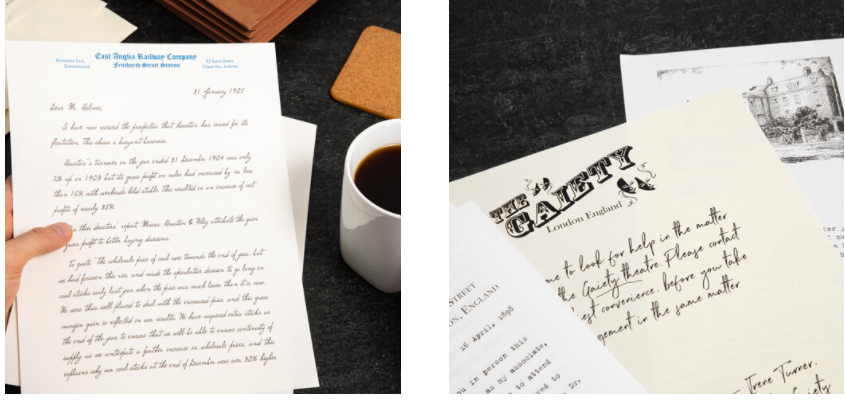 East Anglia Railway Company
Fenchurch Street Station
31 January 1905
Dear Mr. Holmes,
We have now received the prospectus that Houston has issued for its
flotation. This shows a buoyant business.
Houston's turnover in the year ended 31 December 1904 was only
2% up on 1903 but its gross profit on sales had increased by no less
than 16% with overheads held stable. This resulted in an increase of net
profits of nearly 35%.
In this directors' report, Messrs. Houston & Wiley attribute the gain
gross profit to better buying decisions.
To quote: "The wholesale price of coal rose towards the end of year, but
we had foreseen this rise, and made the speculative decision to go long on
coal stocks early last year when the price was much lower than it is now.
We were thus well placed to deal with the increased price, and this gross
margin gain is reflected in our results. We have acquired extra stocks at
the end of the year to ensure that we will be able to ensure continuity of
supply as we anticipate a further increase in wholesale prices, and this
explains why our coal stocks at the end of December were over 30% higher
THE
GAIETY
London England
me to look for help in the matter
the Gaiety theatre. Please contact
est convenience, before you take
gement in the same matter
Irene Turner.
Gaiety
STREET
ON, ENGLAND
16 April, 1898
ou in person this
as my associate,
to attend
red to
Dr.